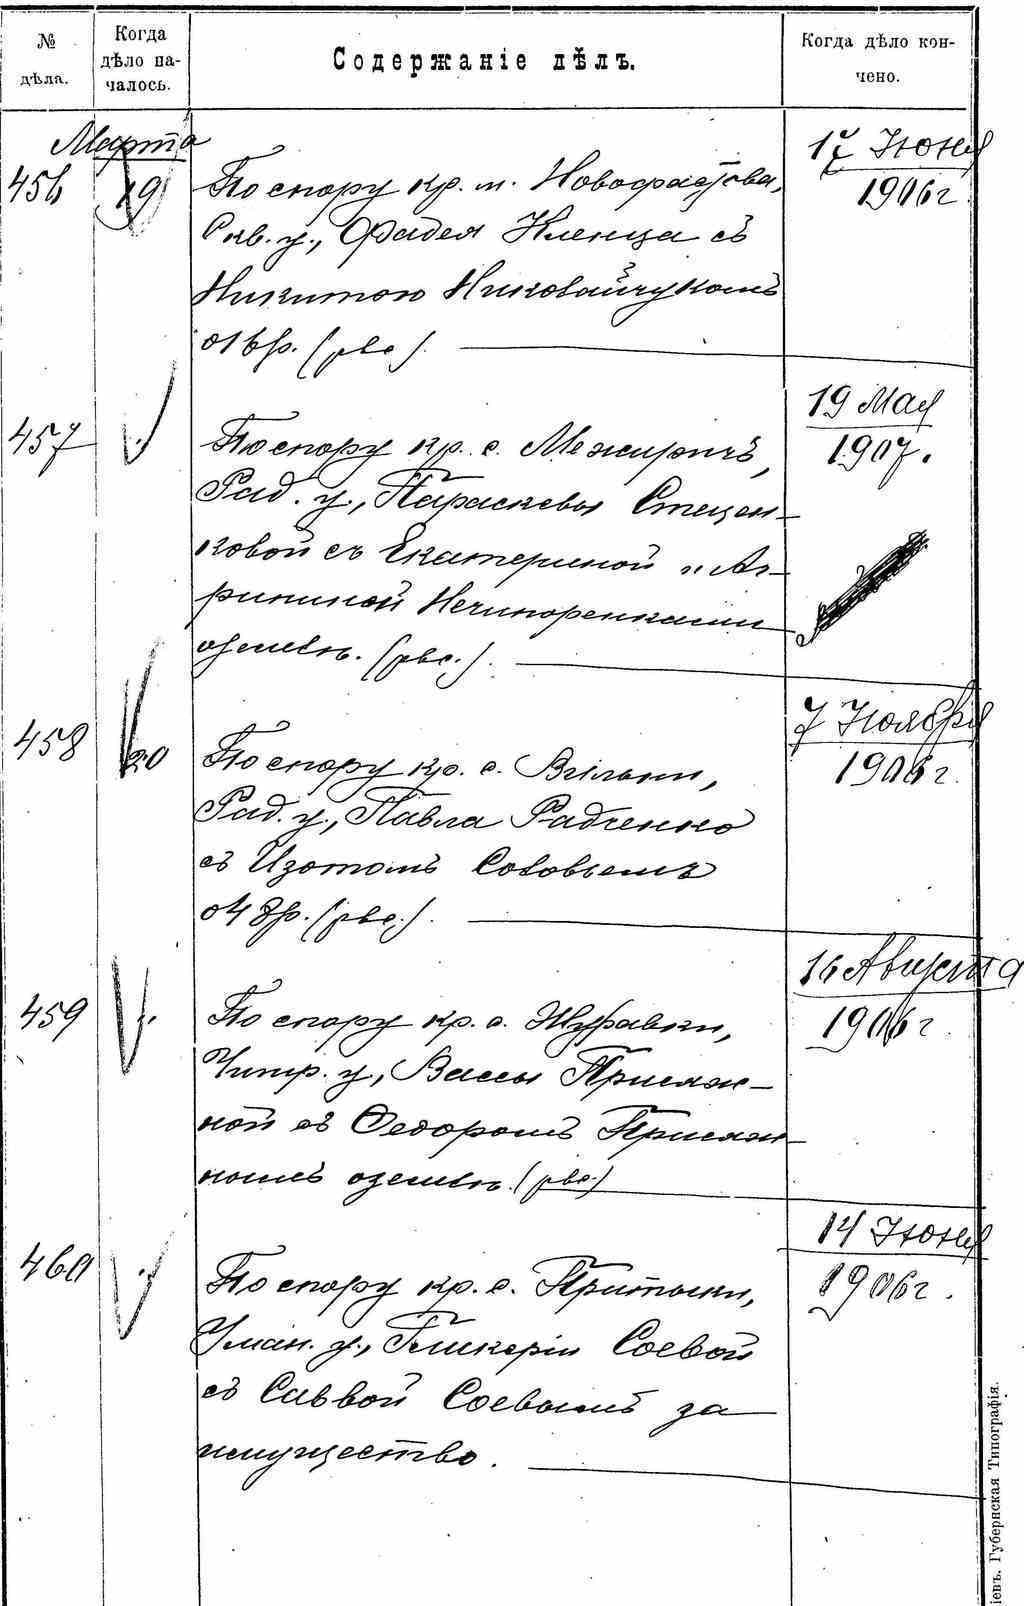 № дѣла.
Когда дѣло на-
чалось.
Содержаніе дѣлъ.
Когда дѣло кон-
чено.
Марта
456 19 По спору кр. м. Новофастова,
Скв. у., Фадея Кленца съ
Никитою
(рвс.).
17 Іюня
1906 г.
457 По спору кр. с. Межиричъ,
Рад. у., Параскевы Стецен-
ковой съ Екатериной и Аг-
рипиной Нечипоренками
о землѣ. (рвс.).
19 Мая
1907.
458 20 По спору кр. с. Вільхи,
Рад. у., Павла Радченко
съ Изотомъ Соловьемъ
(рвс.).
7 Ноября
1906 г.
459 По спору кр. с. Журавки,
Чигир. у., Вассы Присяж-
ной съ Федоромъ Присяж-
нымъ о землѣ. (рвс.)
16 Августа
1906 г.
460 По спору кр. с. Притыки,
Уман. у., Гликеріи Соевой
съ Саввой Соевымъ за
имущество.
14 Іюня
1906 г.
іевъ. Губернская Типографія.